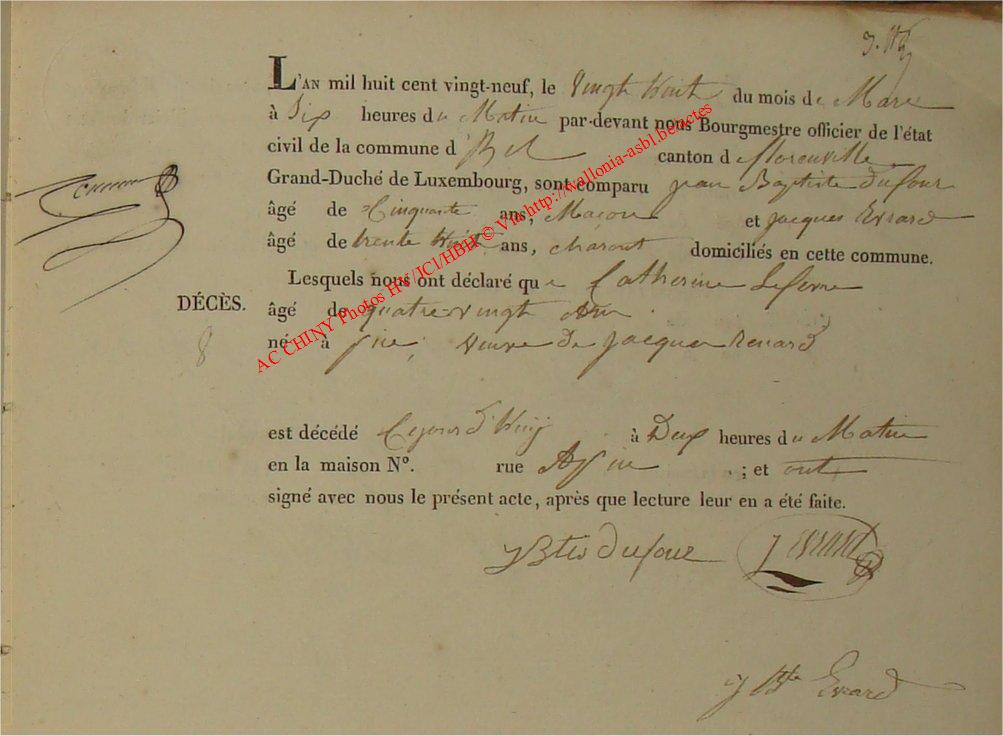 L'AN mil huit cent vingt-neuf, le Vingt Huit du mois de Mars
à Six heures du Matin par-devant nous Bourgmestre officier de l'état
civil de la commune d canton d florenville
Grand-Duché de Luxembourg, sont comparu jean Baptiste Dufour
âgé de Cinquante ans, Maçon et jacques Evrard
âgé de trente Huit ans, domiciliés en cette commune.
Lesquels nous ont déclaré que Catherine
DÉCÈS. âgé de quatre-vingt Ans
8 né à veuve de jacques Renard
est décédé Cejourd'Huy à Deux heures du Matin
en la maison N°. rue ; et ont
signé avec nous le présent acte, après que lecture leur en a été faite.
JBte Dufour J Evrard
J Bte Evrard
AC CHINY Photos HV/JCl/HBH © Via http://wallonia-asbl.be/actes